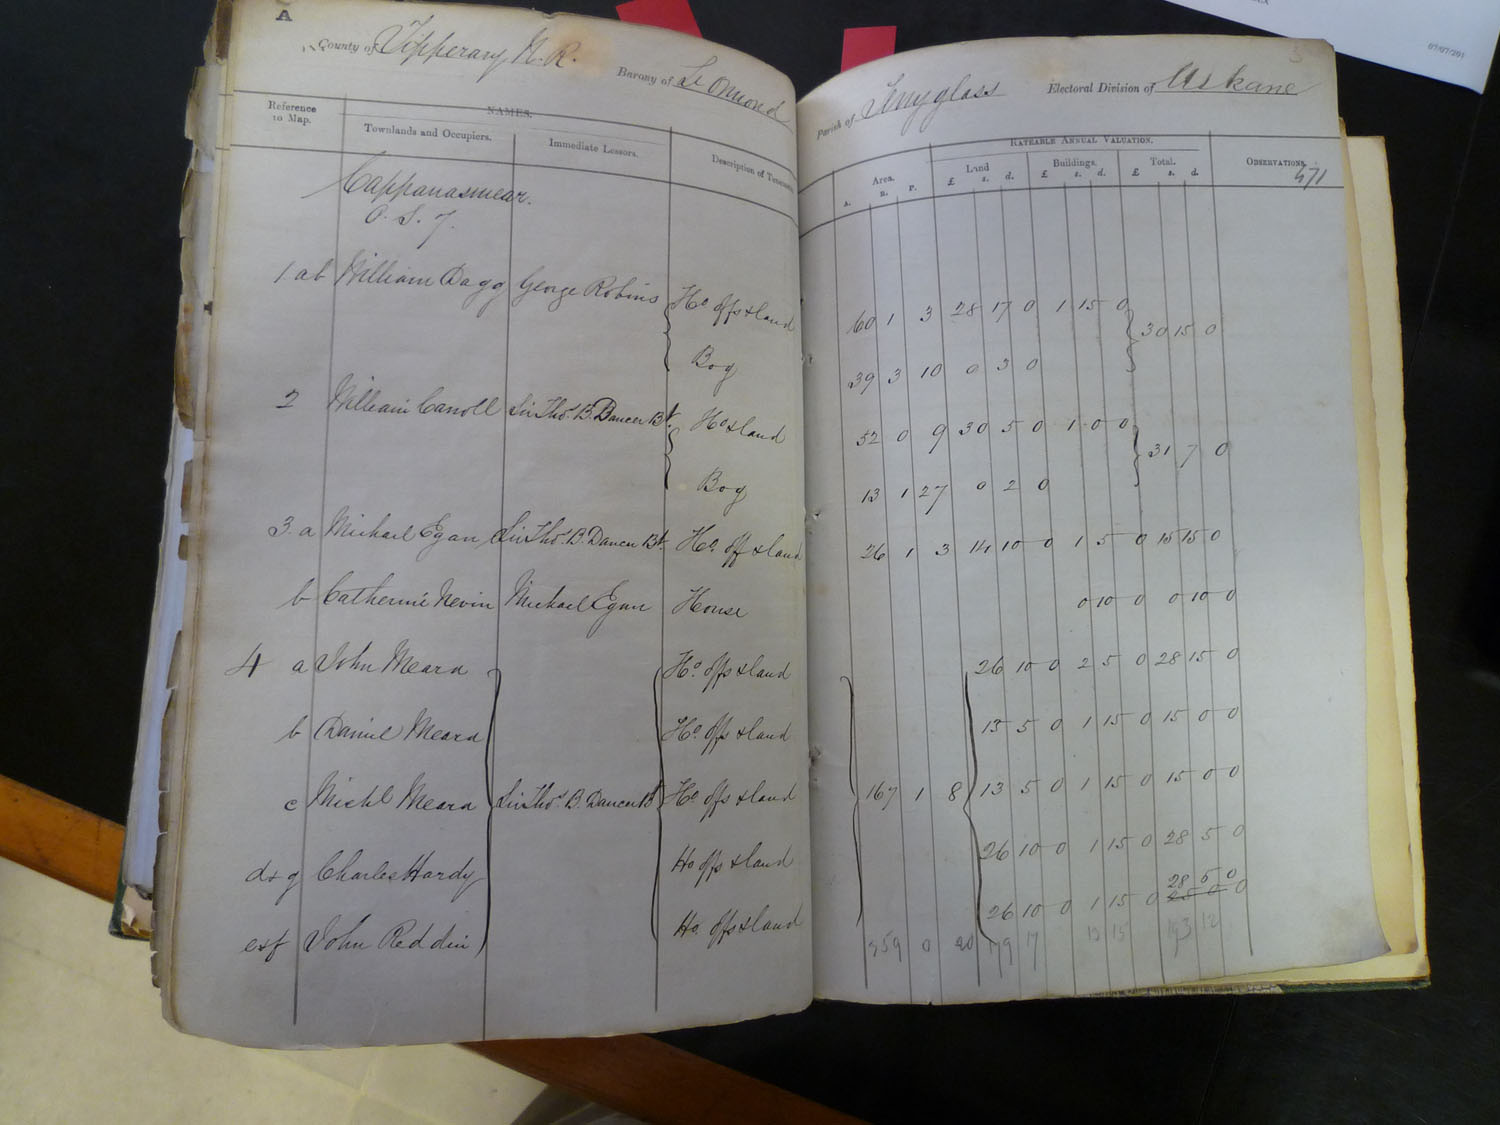 A
County of Tipperary N. R. Barony of Lr Ormond Parish of Terryglass Electoral Division of Uskane
3
07/07/201
Reference to Map. NAMES. Description of Tenement Area. RATEABLE ANNUAL VALUATION. OBSERVATIONS.
Townlands and Occupiers. Immediate Lessors. Land Buildings. Total.
A. R. P. £ s. d. £ s. d. £ s. d.
571
Cappanasmear.
O. S. 7.
1 ab William Dagg George Robins Ho offs & land 60 1 3 28 17 0 1 15 0 30 15 0
Bog 39 3 10 0 3 0
2 William Carroll Sir Thos. B. Dancer Bt. Ho & land 52 0 9 30 5 0 1 0 0 31 7 0
Bog 13 1 27 0 2 0
3 a Michael Egan Sir Thos. B. Dancer Bt. Ho. off & land 26 1 3 14 10 0 1 5 0 15 15 0
b Catherine Nevin Michael Egan House 0 10 0 0 10 0
4 a John Meara Ho. offs & land 26 10 0 2 5 0 28 15 0
b Daniel Meara Ho. offs & land 13 5 0 1 15 0 15 0 0
c Michl Meara Sir Thos. B. Dancer Bt Ho offs & land 167 1 8 13 5 0 1 15 0 15 0 0
d & g Charles Hardy Ho offs & land 26 10 0 1 15 0 28 5 0
28 5 0
e & f John Reddin Ho. offs & land 26 10 0 1 15 0 25 0 0
359 0 20 179 17 13 15 193 12